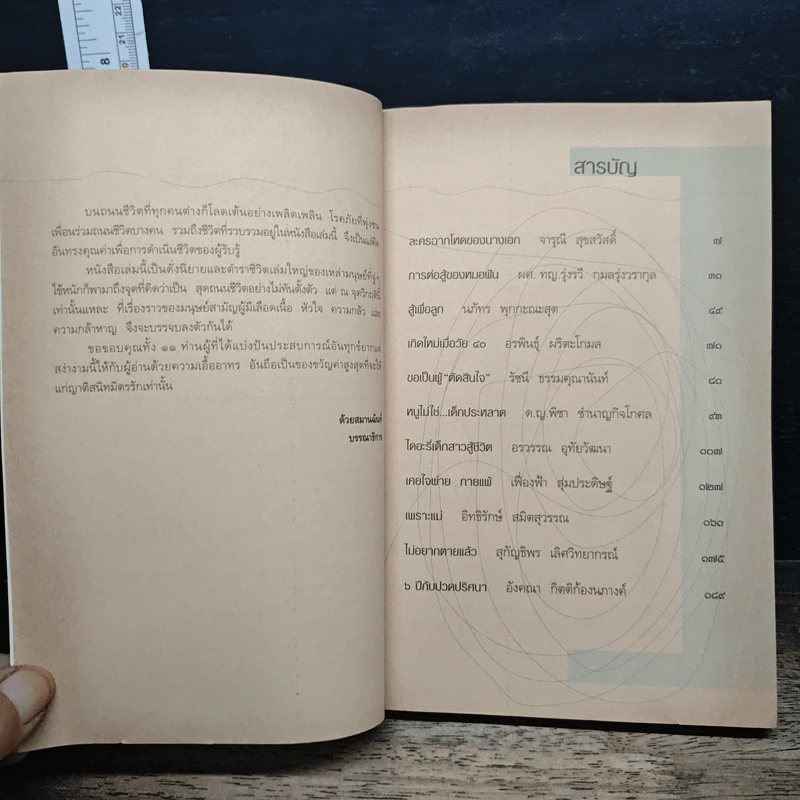 8
22
21
20
บนถนนชีวิตที่ทุกคนต่างก็โลดเต้นอย่างเพลิดเพลิน โรคภัยที่พุ่งชน
เพื่อนร่วมถนนชีวิตบางคน รวมถึงชีวิตที่รวบรวมอยู่ในหนังสือเล่มนี้ จึงเป็น
อันทรงคุณค่าเพื่อการดำเนินชีวิตของผู้รับรู้
หนังสือเล่มนี้เป็นดั่งนิยายและตำราชีวิตเล่มใหญ่ของเหล่ามนุษย์ที่จู่ๆ
ไข้หนักก็พามาถึงจุดที่คิดว่าเป็น สุดถนนชีวิตอย่างไม่ทันตั้งตัว แต่ ณ จุดวิกฤตินี้
เท่านั้นแหละ ที่เรื่องราวของมนุษย์สามัญผู้มีเลือดเนื้อ หัวใจ ความกลัว และ
ความกล้าหาญ จึงจะบรรจบลงตัวกันได้
ขอขอบคุณทั้ง ๑๑ ท่านผู้ที่ได้แบ่งปันประสบการณ์อันทุกข์ยากแต่
สง่างามนี้ให้กับผู้อ่านด้วยความเอื้ออาทร อันถือเป็นของขวัญค่าสูงสุดที่จะให้
แก่ญาติสนิทมิตรรักเท่านั้น
ด้วยสมานฉันท์
บรรณาธิการ
สารบัญ
ละครฉากโหดของนางเอก จารุณี สุขสวัสดิ์ ๗
การต่อสู้ของหมอฟัน ผศ. ทญ.รุ่งรวี กมลรุ่งวรากุล ๓๑
สู้เพื่อลูก นภัทร พุกกะณะสุต ๔๙
เกิดใหม่เมื่อวัย ๔๐ อรพินธุ์ ผริตะโกมล ๗๑
ขอเป็นผู้ “ตัดสินใจ” รัชนี ธรรมคุณานันท์ ๘๑
หนูไม่ใช่...เด็กประหลาด ด.ญ.พิชา ชำนาญกิจโกศล ๙๓
ไดอะรี่เด็กสาวสู้ชีวิต อรวรรณ อุทัยวัฒนา ๑๐๗
เคยใจพ่าย กายแพ้ เฟื่องฟ้า สุ่มประดิษฐ์ ๑๒๗
เพราะแม่ อิทธิรักษ์ สมิตสุวรรณ ๑๖๑
ไม่อยากตายแล้ว สุกัญธิพร เลิศวิทยากรณ์ ๑๗๕
๖ ปีกับปวดปริศนา อังคณา กิตติก้องนภางค์ ๑๘๙